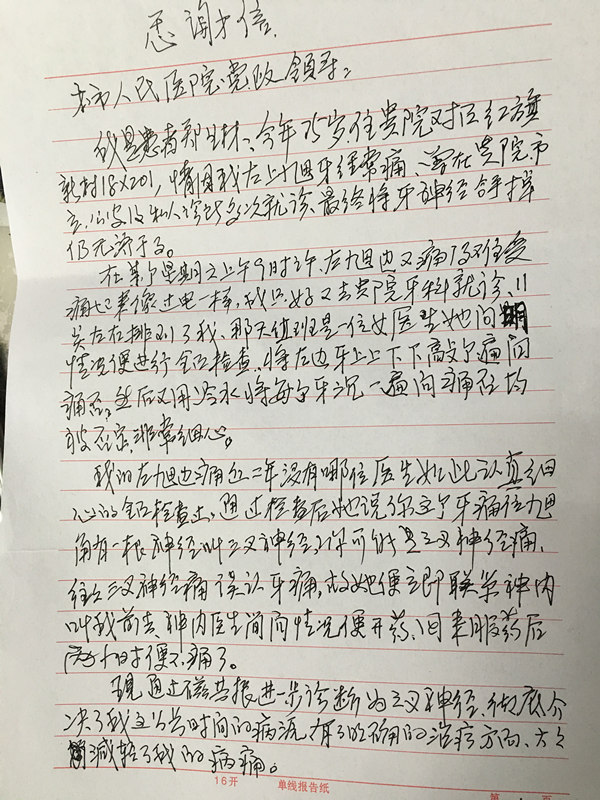 感谢信
市人民医院党政领导:
我是患者郑生材、今年75岁,住贵院对面红旗
新村18X201,情因我左上九思牙经常痛、曾在贵院、市
立、公安及私人诊所多次就诊、最终将牙神经合手掉
仍无济于事。
在某个星期之上午9时许、左边又痛得难受
痛起来像过电一样,我只好又去贵院牙科就诊、11
点左右排到了我、那天值班是一位女医生她问明
情况便进行全面检查、将左边牙上上下下敲了遍问
痛否,然后又用冷水将每个牙沉一遍问痛否均
被否定,非常细心。
我的左边痛近二年没有哪位医生如此认真细
心的全面检查过,通过检查后她说你这个牙痛位
角有一根神经叫三叉神经,你可能是三叉神经痛,
往往三叉神经痛误认牙痛,故她便立即联系神内
叫我前去、神内医生简问情况便开药、回来服药后
两小时便不痛了。
现通过磁共振进一步诊断为三叉神经、彻底介
决了我这么长时间的病况,有了的确用的治疗方向、大大
减轻了我的病痛。
16开 单线报告纸
第 页